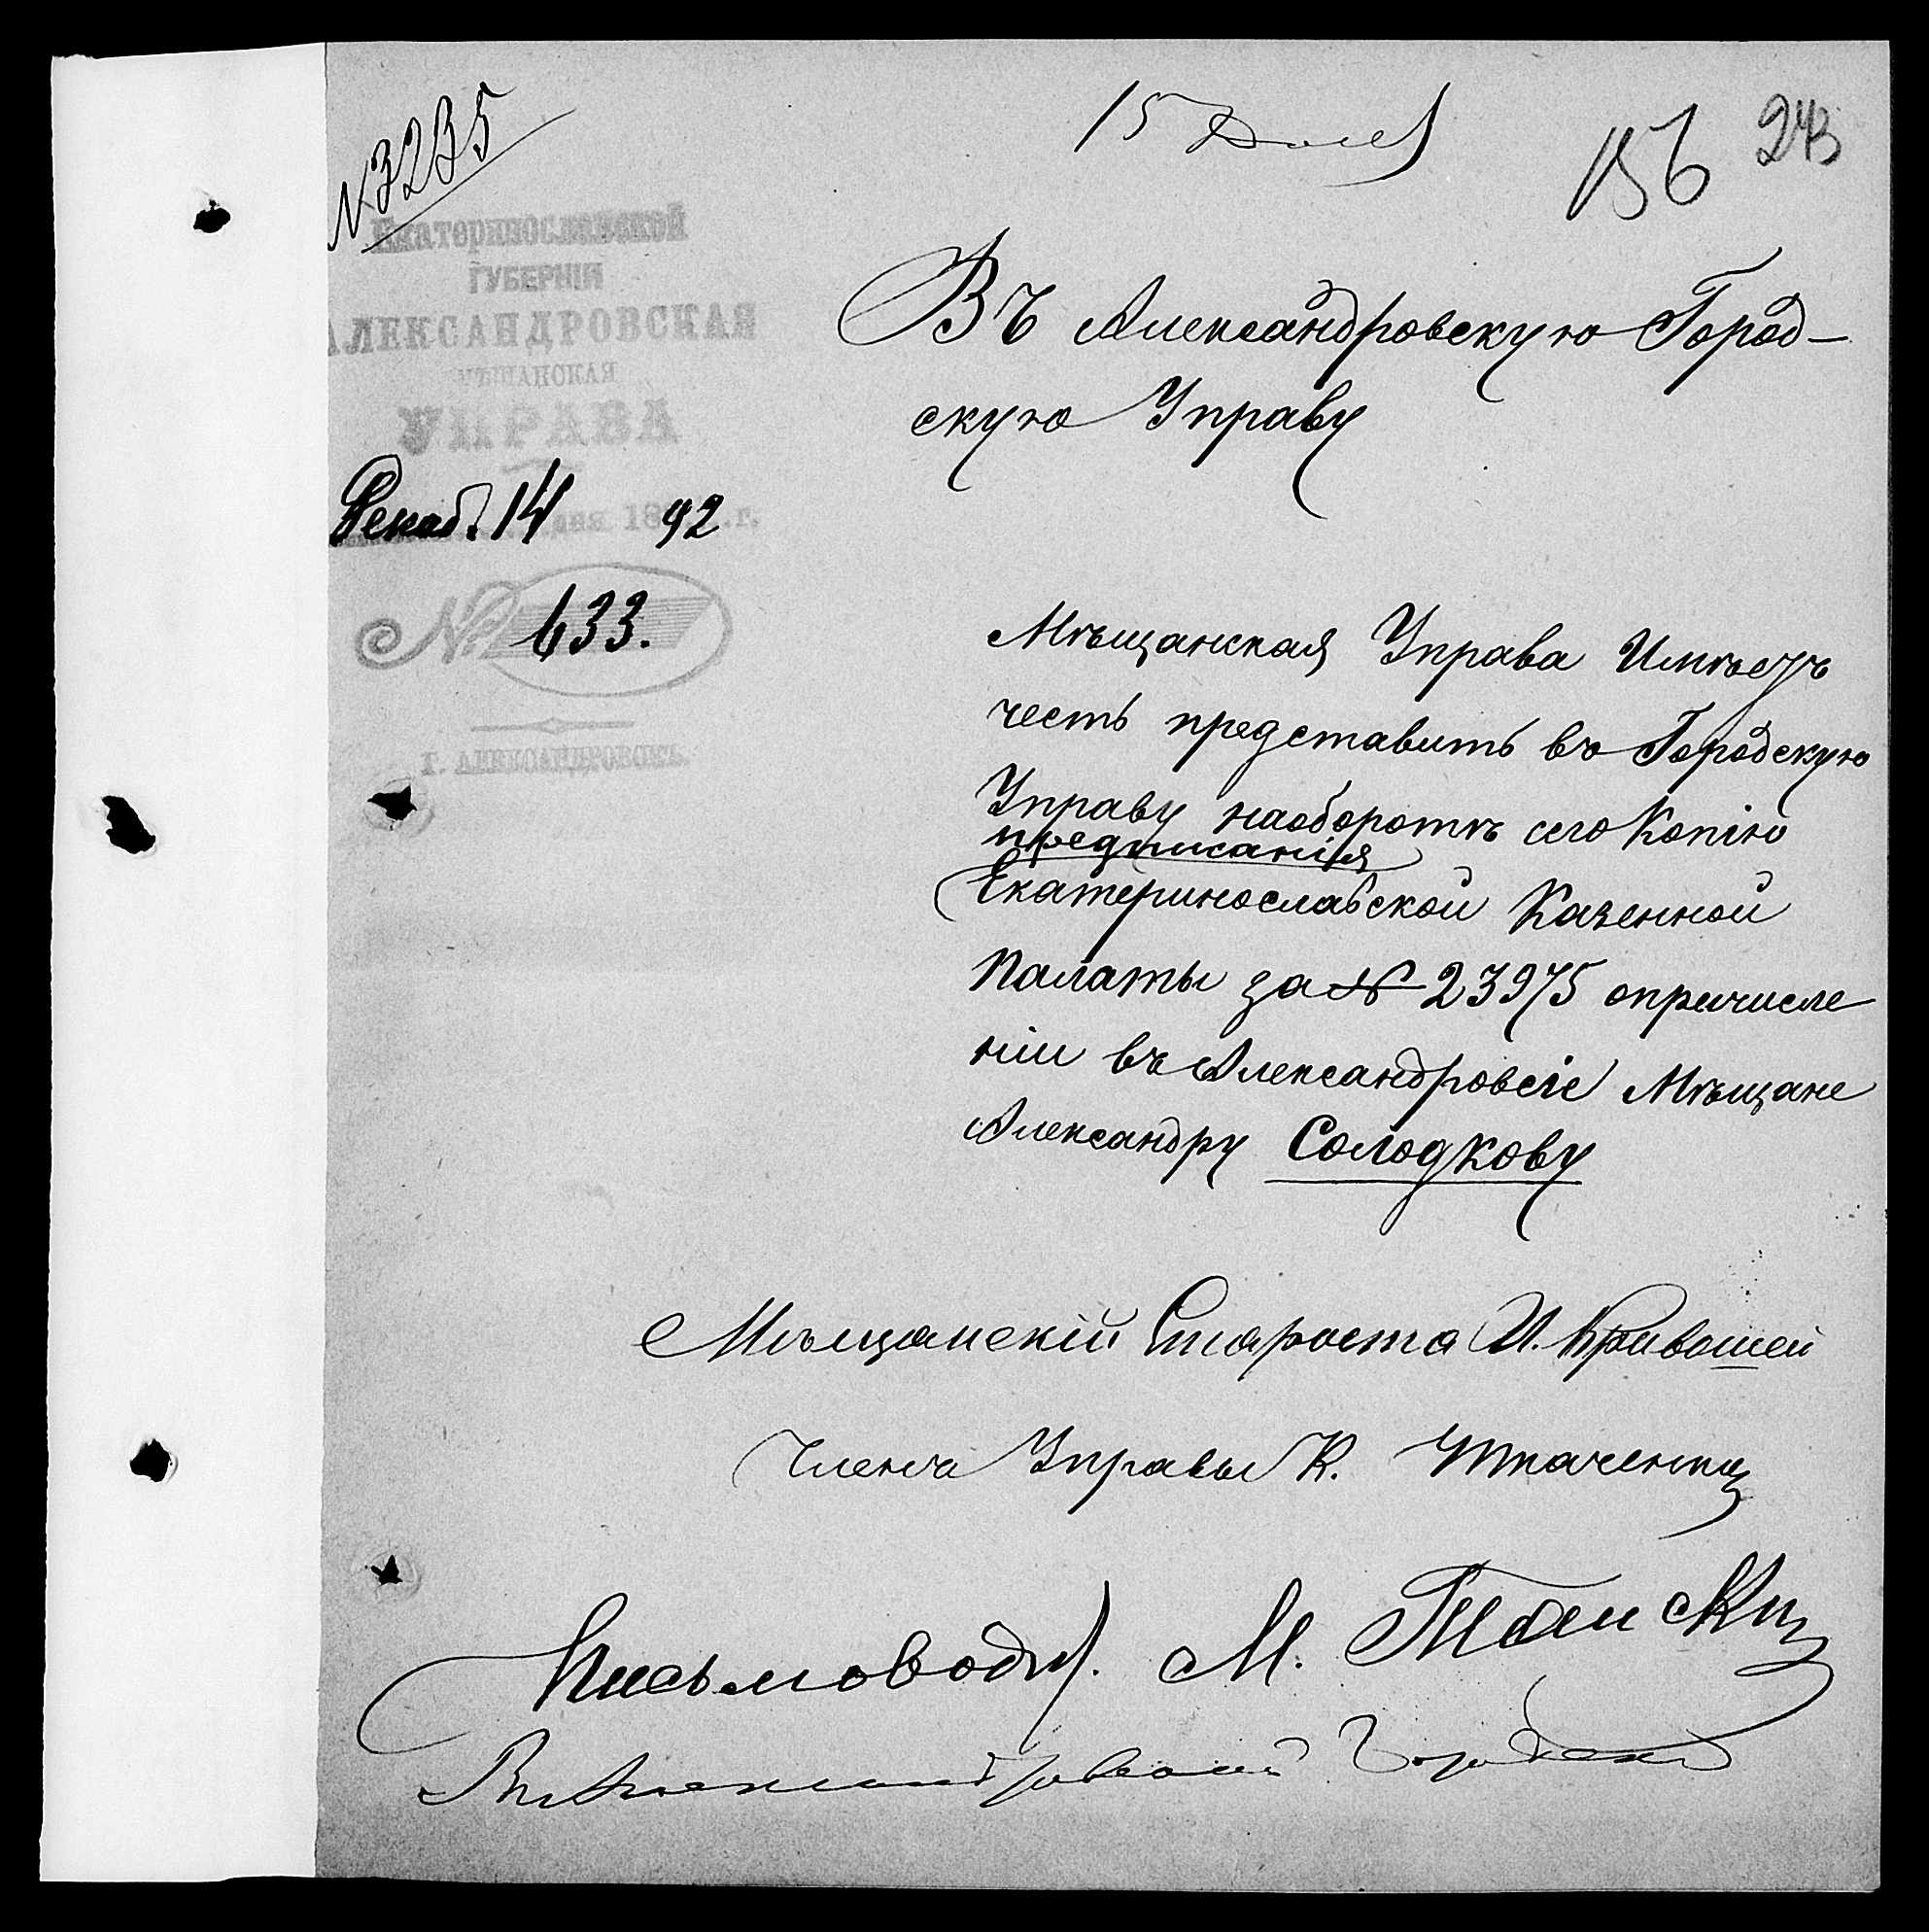 № 3235
15 Дек
156
243
Екатеринославской
ГУБЕРНІИ
АЛЕКСАНДРОВСКАЯ
МѢЩАНСКАЯ
УПРАВА
Декаб. 14 дня 1892 г.
№ 633.
Г. АЛЕКСАНДРОВСКЪ.
Въ Александровскую Город-
скую Управу
Мѣщанская Управа Имѣетъ
честь представить въ Городскую
Управу наоборотѣ сего Копію
предписанія
Екатеринославской Казенной
Палаты за № 23975 опричисле
ніи въ Александровскіе Мѣщане
Александру Солодкову
Мѣщанскій Староста И. Кривошей
Членъ Управы К. Ткаченко
Письмовод. М.
Въ Александровской Городской